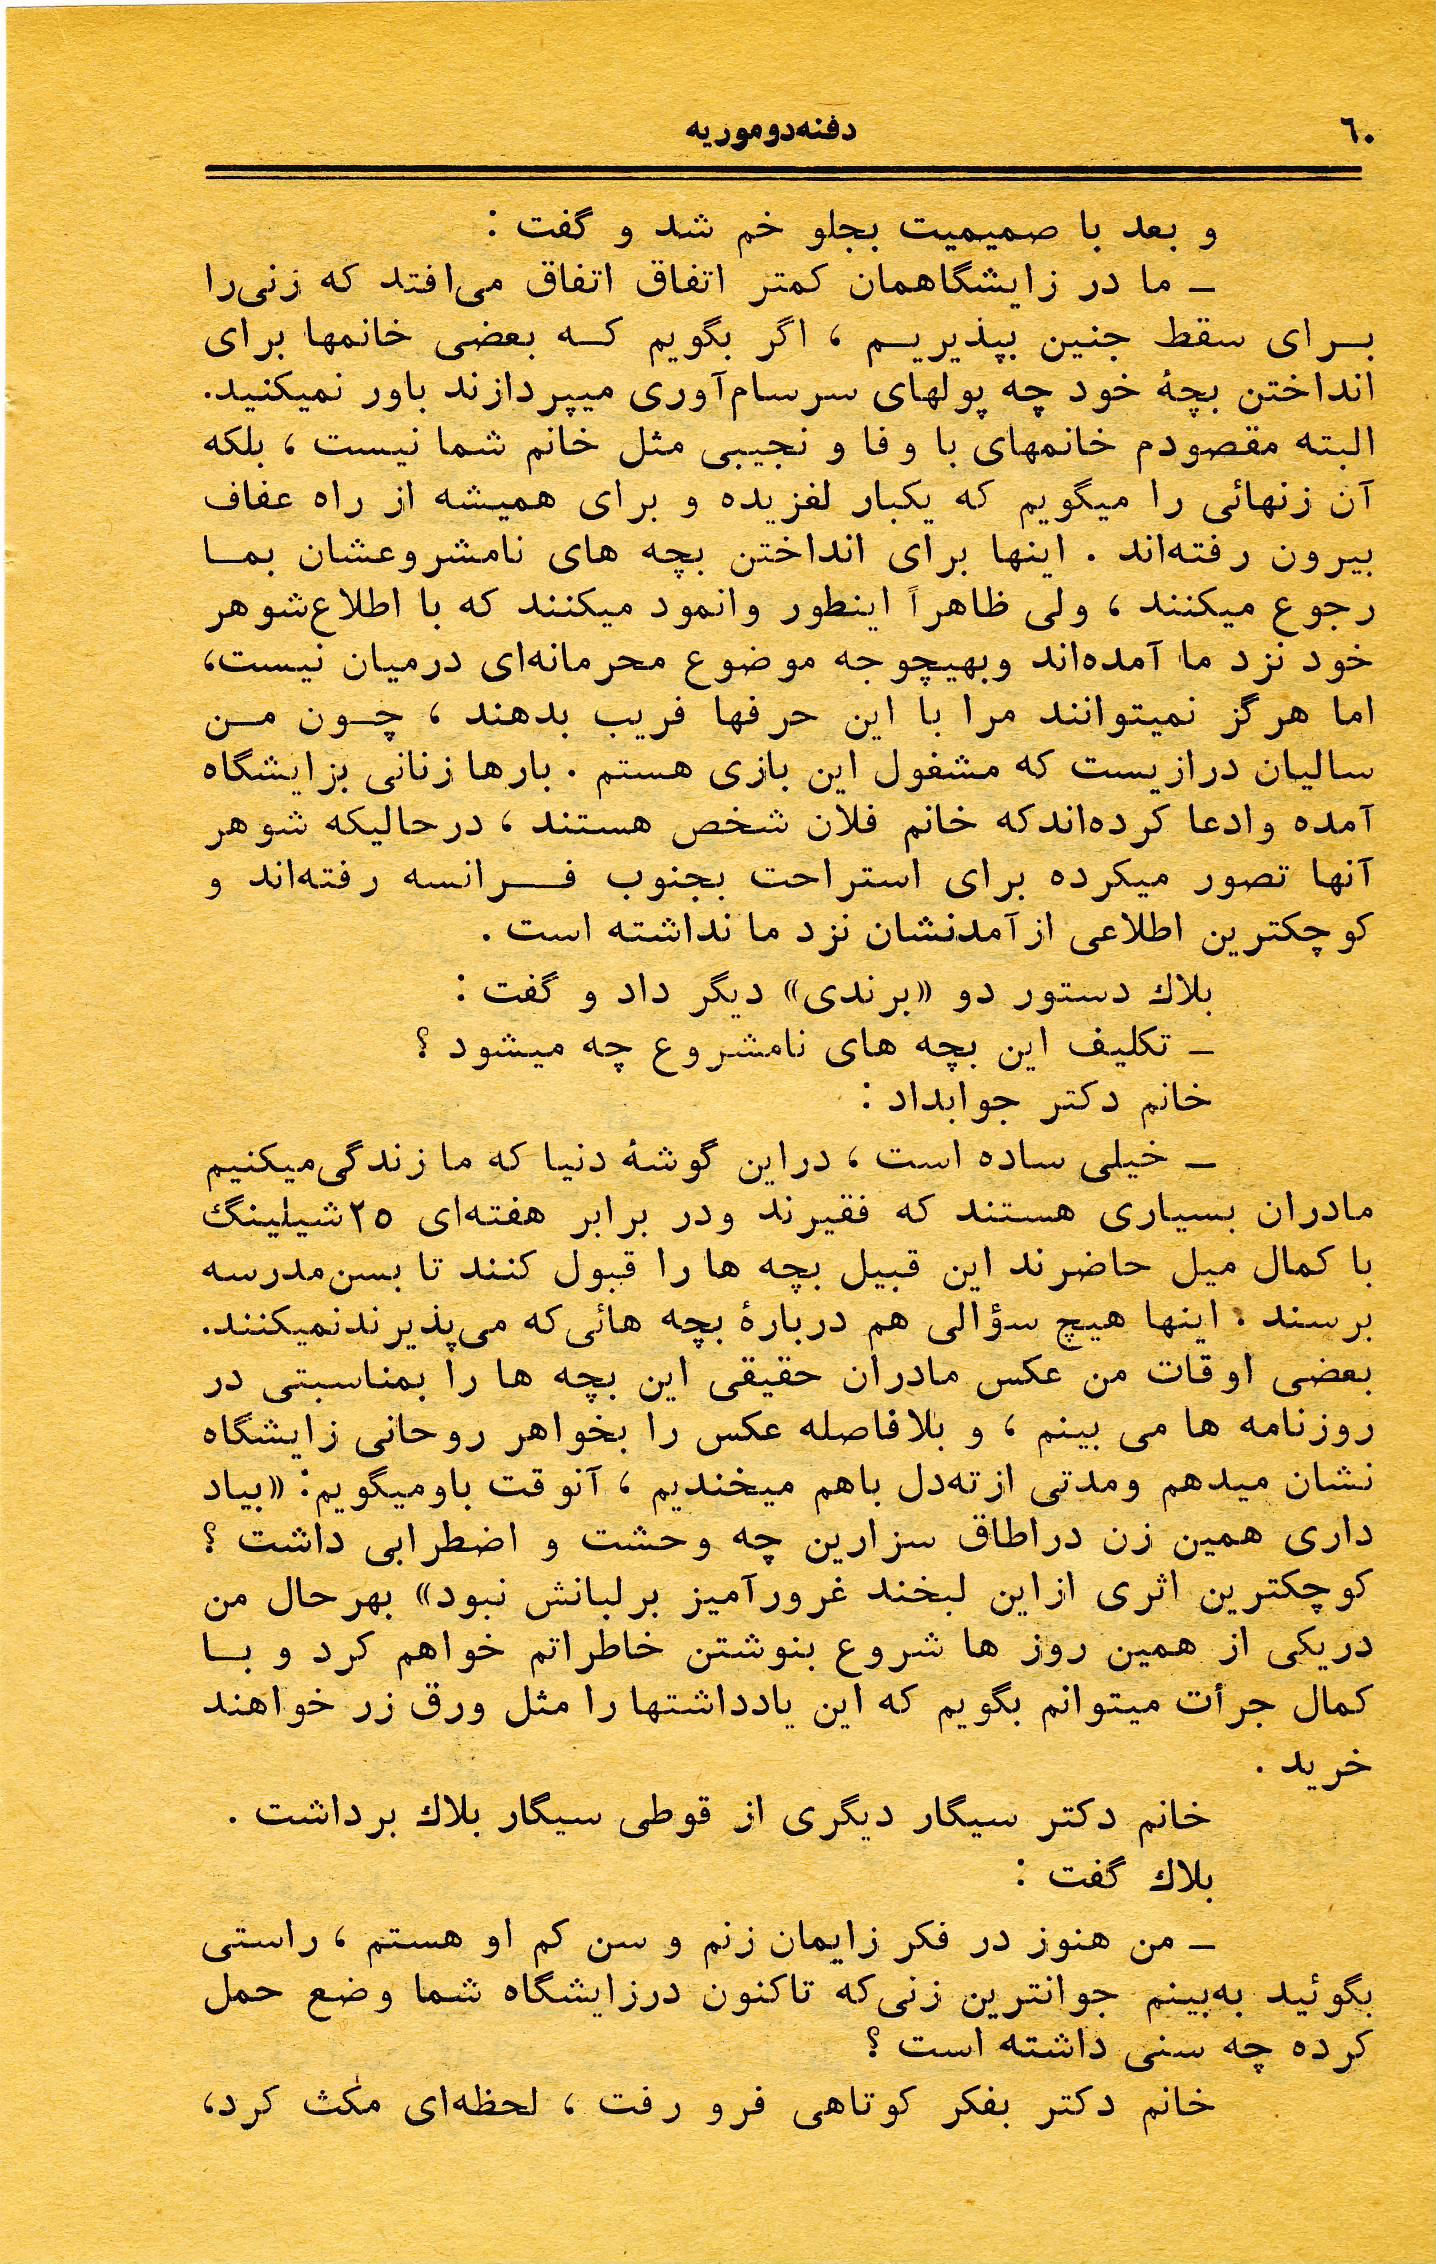 ٦٠
دفنه‌دوموریه
و بعد با صمیمیت بجلو خم شد و گفت :
ـ ما در زایشگاهمان کمتر اتفاق اتفاق می‌افتد که زنی‌را
بـرای سقط جنین بپذیریـم ، اگر بگویم کـه بعضی خانمها برای
انداختن بچهٔ خود چه پولهای سرسام‌آوری میپردازند باور نمیکنید.
البته مقصودم خانمهای با وفا و نجیبی مثل خانم شما نیست ، بلکه
آن زنهائی را میگویم که یکبار لغزیده و برای همیشه از راه عفاف
بیرون رفته‌اند . اینها برای انداختن بچه های نامشروعشان بمـا
رجوع میکنند ، ولی ظاهراً اینطور وانمود میکنند که با اطلاع‌شوهر
خود نزد ما آمده‌اند وبهیچوجه موضوع محرمانه‌ای درمیان نیست،
اما هرگز نمیتوانند مرا با این حرفها فریب بدهند ، چـون مـن
سالیان درازیست که مشغول این بازی هستم . بارها زنانی بزایشگاه
آمده وادعا کرده‌اندکه خانم فلان شخص هستند ، درحالیکه شوهر
آنها تصور میکرده برای استراحت بجنوب فــرانسه رفته‌اند و
کوچکترین اطلاعی ازآمدنشان نزد ما نداشته است .
بلاك دستور دو «برندی» دیگر داد و گفت :
ـ تکلیف این بچه های نامشروع چه میشود ؟
خانم دکتر جوابداد :
ـ خیلی ساده است ، دراین گوشهٔ دنیا که ما زندگی‌میکنیم
مادران بسیاری هستند که فقیرند ودر برابر هفته‌ای ۲۵شیلینگ
با کمال میل حاضرند این قبیل بچه ها را قبول کنند تا بسن‌مدرسه
برسند . اینها هیچ سؤالی هم دربارهٔ بچه هائی‌که می‌پذیرندنمیکنند.
بعضی اوقات من عکس مادران حقیقی این بچه ها را بمناسبتی در
روزنامه ها می بینم ، و بلافاصله عکس را بخواهر روحانی زایشگاه
نشان میدهم ومدتی ازته‌دل باهم میخندیم ، آنوقت باومیگویم: «بیاد
داری همین زن دراطاق سزارین چه وحشت و اضطرابی داشت ؟
کوچکترین اثری ازاین لبخند غرورآمیز برلبانش نبود» بهرحال من
دریکی از همین روز ها شروع بنوشتن خاطراتم خواهم کرد و بـا
کمال جرأت میتوانم بگویم که این یادداشتها را مثل ورق زر خواهند
خرید .
خانم دکتر سیگار دیگری از قوطی سیگار بلاك برداشت .
بلاك گفت :
ـ من هنوز در فکر زایمان زنم و سن کم او هستم ، راستی
بگوئید به‌بینم جوانترین زنی‌که تاکنون درزایشگاه شما وضع حمل
کرده چه سنی داشته است ؟
خانم دکتر بفکر کوتاهی فرو رفت ، لحظه‌ای مکث کرد،